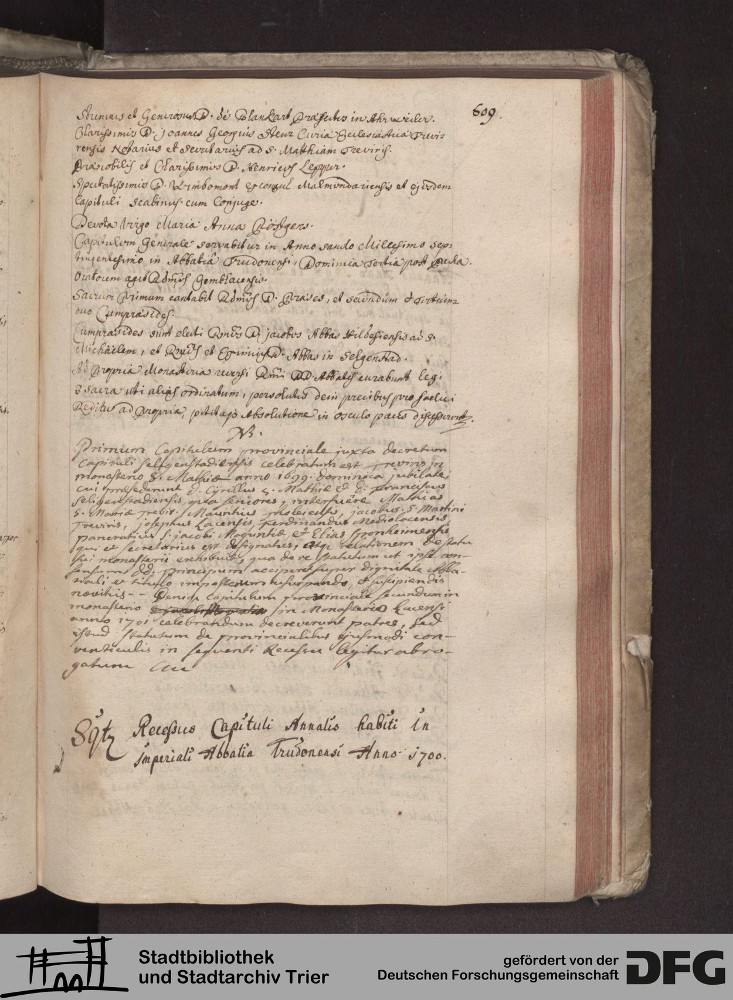 809.
Strenuus et Generosus D. de Blankart Præfectus in Ahrweiler.
Clarissimus D. Joannes Georgius Heur Curiæ Ecclesiasticæ Trevi-
rensis Notarius et Secretarius ad S. Matthiam Treviris.
Prænobilis et Clarissimus D. Henricus Leppur.
Spectatissimus D. Wimbomont exconsul Malmundariensis et ejusdem
Capituli Scabinus cum Conjuge.
Devota Virgo Maria Anna Röttgers.
Capitulum Generale servabitur in Anno sancto Millesimo Sep-
tingentesimo in Abbatia Trudonensi, Dominica tertia post Pascha.
Oratorem aget Rdmus Gemblacensis.
Sacrum Primum cantabit Rdmus D. Præses, et secundum et tertium
duo Compræsides.
Compræsides sunt electi Rmus D. Jacobus Abbas Hildesiensis ad S.
Michaelem, et Rmus et Eximius D. Abbas in Selgenstad.
Ad Propria Monasteria reversi Rmi DD. Abbates curabunt legi
3 sacra uti alias ordinatum, persolutis dein precibus pro fælici
Reditu ad Propria, petitaque Absolutione in osculo pacis discesserunt.
NB.
Primum Capitulum provinciale juxta decretum
Capituli Selgenstadiensis celebratum est Treviris in
monasterio S. Mathiæ anno 1699. dominica jubilate,
cui præsederunt D. Cyrillus S. Mathiæ et D. Franciscus
Seligenstadiensis, qua seniores, interfuere Mathias
S. Mariæ Trevir. Mauritius Tholeiensis, Jacobus S. Martini
Treviris, Josephus Lacensis, Ferdinandus Mediolacensis,
pancratius S. Jacobi Moguntiæ et Elias Sponheimensis
qui et Secretarius est designatus, atque relationem de statu
sui monasterii exhibuit, qua de re statutum ut ipse con-
sensum DD. principum accipere super dignitate Abba-
tiali et titulo imposterum usurpando, et suscipiendis
novitiis -- Denique Capitulum provinciale secundum in
monasterio in Monasterio Lacensi
anno 1701 celebrandum decreverunt patres, Sed
istud statutum de provincialibus ejusmodi con-
venticulis in sequenti Recessu legitur abro-
gatum
Sqtz Recessus Capituli Annalis habiti in
Imperiali Abbatia Trudonensi Anno 1700.
Stadtbibliothek
und Stadtarchiv Trier
gefördert von der
Deutschen Forschungsgemeinschaft
DFG